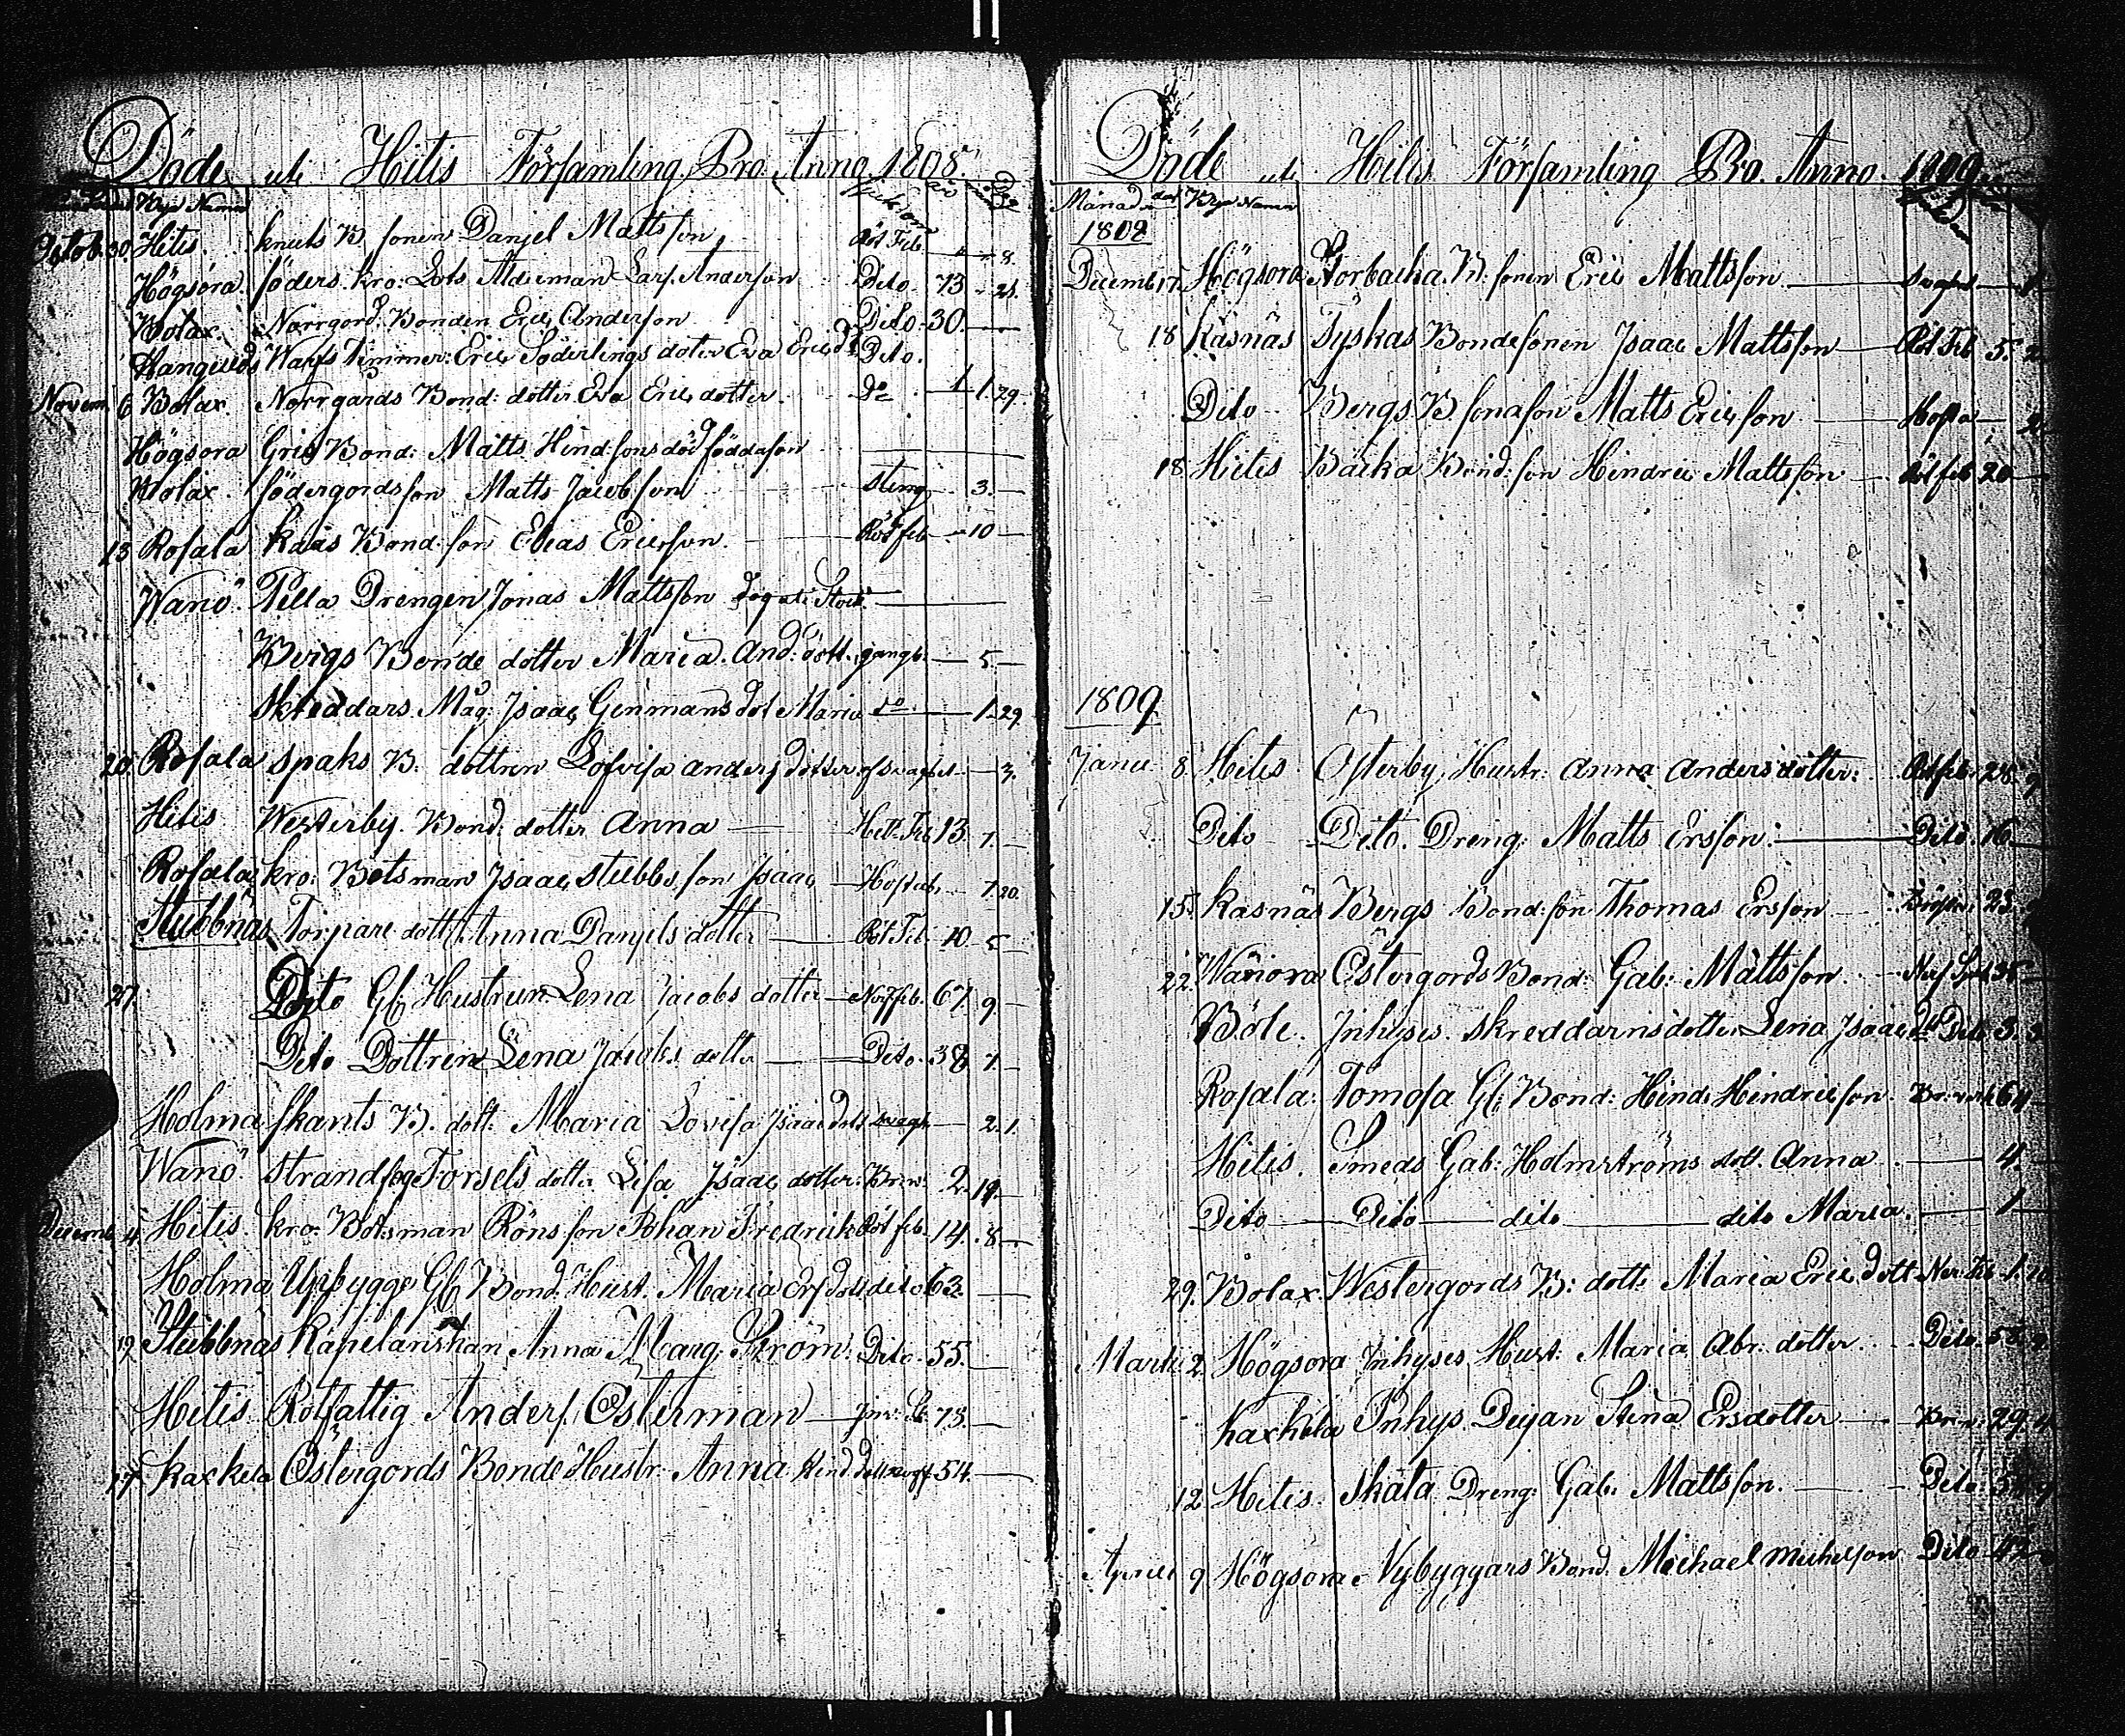 Döde uti Hitis Församling Pro Anno 1808
Bye Namn
Octob. 30 Hitis. knuts B. sonen Danjel Mattsson Röt Feb. 8.
Högsora söders. kro: Lots Alderman Lars Andersson Dito 73 21.
Bolax. Norrgord. Bonden Eric Andersson Dito 30.
Warfs Timmer: Eric Söderlings doter Eva Ericsd. Dito.
Novem 6 Bolax. Norrgårds Bond: dotter Eva Erics dotter Do 1. 29.
Högsora Bond: Matts Hindssons död föddason
Bolax. södergords son Matts Jacobsson sting 3.
13 Rosala Kaas Bond: son Elias Ericsson. Röt feb 10
Wanö. Pella Drengen Jonas Mattsson
Bergs Bonde dotter Maria And: dott. 5
Skreddars Måg: Isaac Genmans dot Maria do 1. 29.
20. Rosala spaks B. dottren Lofvisa anders dotter 3.
Hitis Westerby. Bond: dotter Anna Het. Feb 13. 7.
Rosala kro: Botsman Isaac stubbs son Isaac 7 20.
Stubbnäs Torpare dott. Anna Danjels dotter Röt Feb. 10 5
27. Dito Gl. Hustrun Lena Jacobs dotter 67. 9
Dito Dottren Lena Jacobs dotter Dito. 38 7.
Holma skants B. dott. Maria Lovisa Isaacs dott 2. 1.
Wanö. strandfog Forsels dotter Lisa Isaac dotter. 2. 19.
Decemb 4 Hitis. kro: Botsman Röns son Johan Fredrik Röt feb. 14. 8
Holma Gl. Bond. Hust. Maria Ersdott dito 63.
12 Stubbnäs Kapelanskan Anna Marg. Ström. Dito. 55.
Hitis Rotfattig Anders Österman 73.
17. kaxkela Östergords Bonde Hustr Anna Hind dott 54.
Döde uti Hitis Församling Pro. Anno. 1809
Månad dat Bye Namn
1808
Decemb 17. Högsora Storbacka B: sonen Eric Mattsson
18 Kasnäs Tyskas Bondesonen Isaac Mattsson Röt Feb 5. 2
Dito Bergs B sonason Matts Ericsson Hosta 2.
18 Hitis Backa Bond: son Hindric Mattsson Röt feb 20
1809
Janu. 8 Hitis Österby, Hustr: Anna Anders dotter: Röt feb 28. 9
Dito Dito. Dreng: Matts Ersson: Dito. 16.
15. Kasnäs Bergs Bond: son Thomas Ersson 23.
22. Wanora Östergords Bond: Gab: Mattsson.
Böle. Inhyses skreddarns dotter Lena Isaacs dt Dito 3. 3
Rosala. Tomosa Gl. Bond: Hind: Hindricsson. 64
Hitis. Smeds Gab: Holmströms dott. Anna 4.
Dito Dito dito dito Maria. 1
29. Bolax. Westergords B: dott: Maria Erics dott 1. 10
Marti. 2. Högsora Inhyses Hust: Maria Abr: dotter Dito. 58. 9
Kaxkela Inhys. Dejan Stina Ersdotter 29.
12 Hitis. Skata Dreng: Gab. Mattsson. Dito.
Aprill 9 Högsora Nybyggars Bond. Michael Michelsson Dito 42